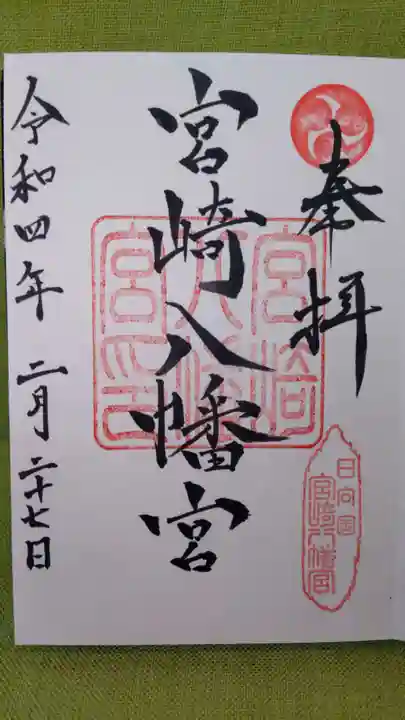 奉拝
日向国
宮崎八幡宮
宮崎八幡宮
宮崎八幡宮印
令和四年 二月二十七日